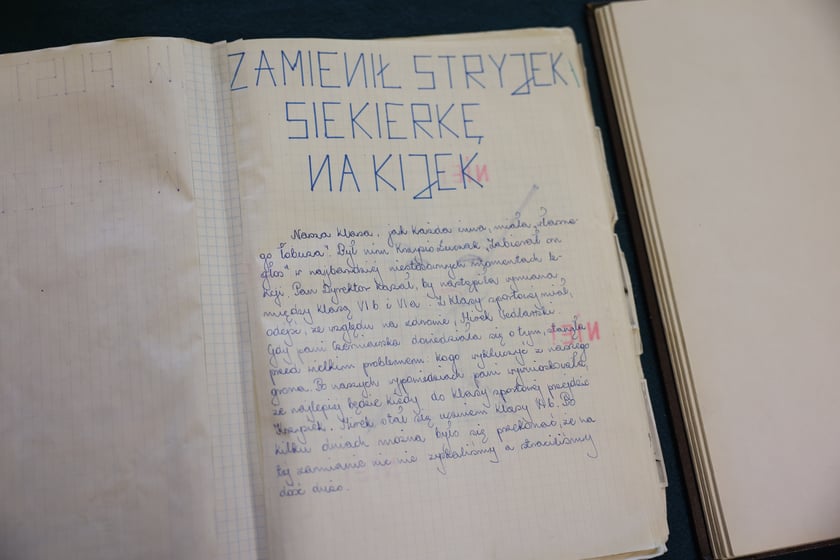 ZAMIENIŁ STRYJEK
SIEKIERKĘ
NA KIJEK
Nasza klasa, jak każda inna, miała „swoje-
go łobuza”. Był nim Krzysio „Zabierał on
głos” w najbardziej niestosownych momentach le-
kcji. Pan Dyrektor kazał, by nastąpiła wymiana
między klasą VI b i VI a. Z klasy sportowej miał,
odejść, ze względu na zdrowie, Mirek Jedlański.
Gdy pani dowiedziała się o tym, stanęła
przed wielkim problemem: kogo wykluczyć z naszego
grona. Po naszych wypowiedziach pani wywnioskowała,
że najlepiej będzie kiedy do klasy sportowej przejdzie
Krzysiek. Mirek stał się uczniem klasy VI b. Po
kilku dniach można było się przekonać, że na
tej zamianie nic nie zyskaliśmy a straciliśmy
dość dużo.